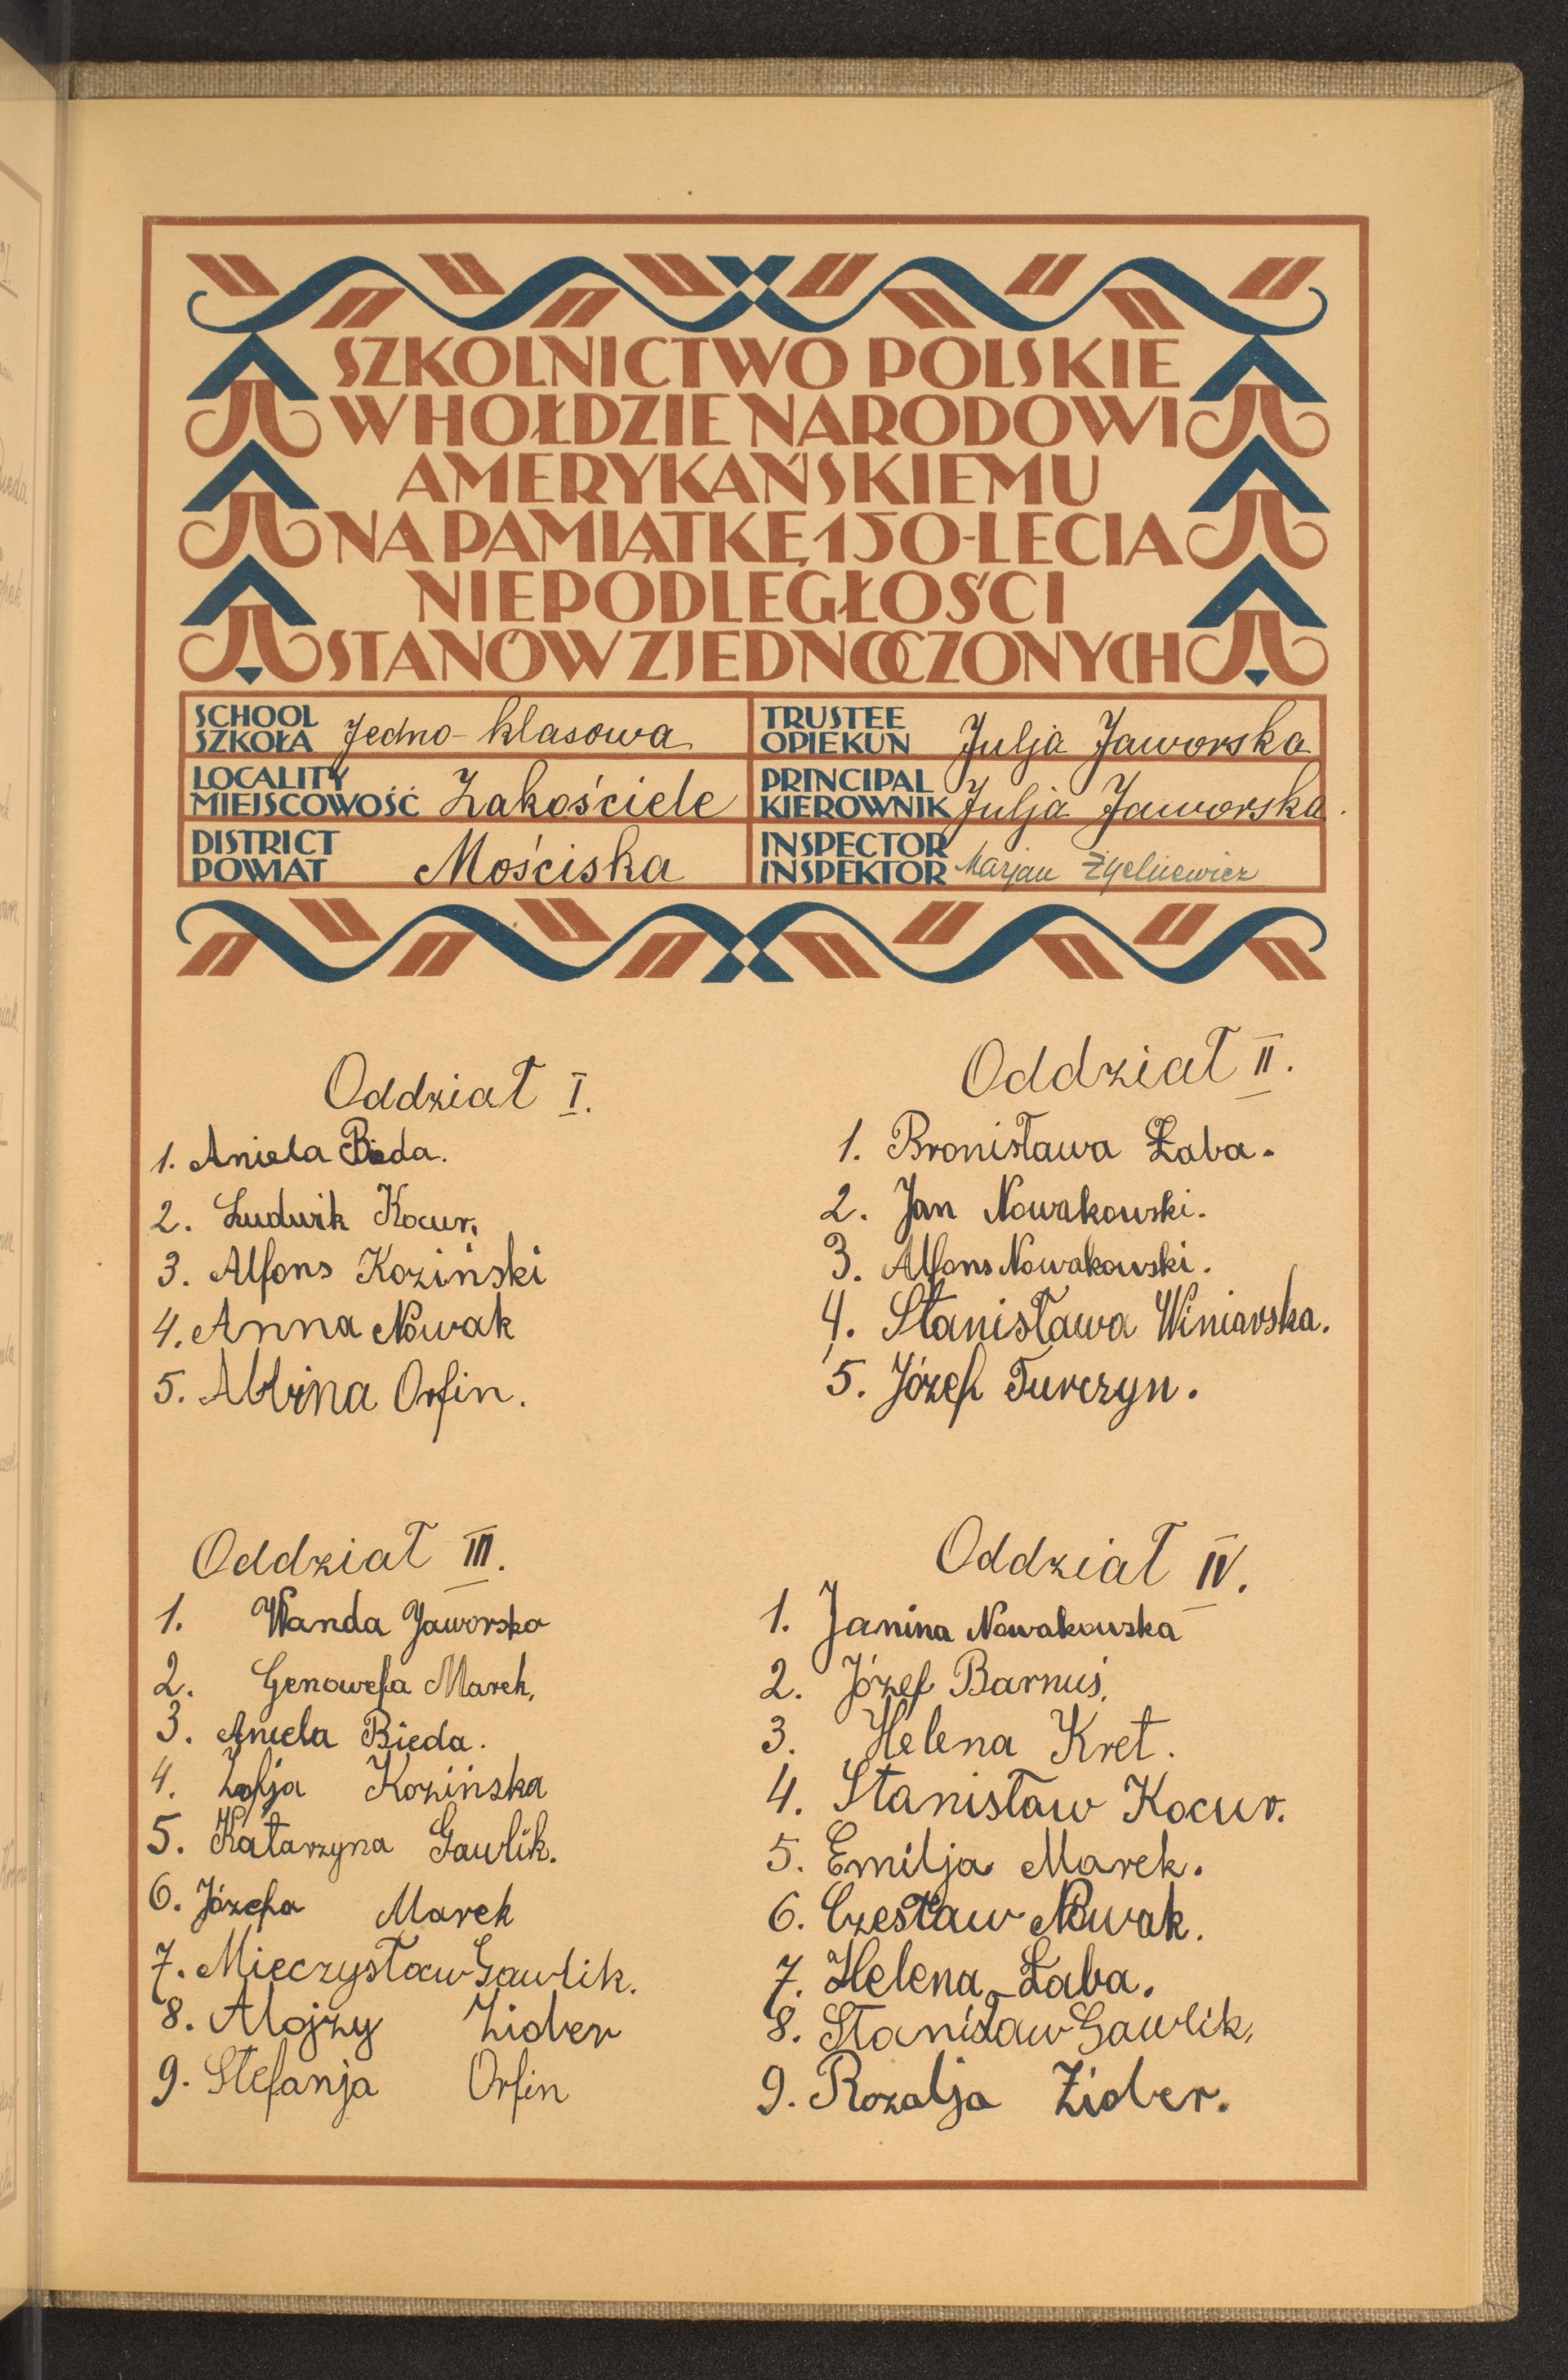 SZKOLNICTWO POLSKIE
W HOŁDZIE NARODOWI
AMERYKAŃSKIEMU
NA PAMIĄTKĘ 150-LECIA
NIEPODLEGŁOŚCI
STANÓW ZJEDNOCZONYCH
SCHOOL
SZKOŁA Jedno-klasowa
TRUSTEE
OPIEKUN Julja Jaworska
LOCALITY
MIEJSCOWOŚĆ Zakościele
PRINCIPAL
KIEROWNIK Julja Jaworska.
DISTRICT
POWIAT Mościska
INSPECTOR
INSPEKTOR Marjan
Oddział I.
1. Aniela Bieda.
2. Ludwik Kocur.
3. Alfons Koziński
4. Anna Nowak
5. Albina Orfin.
Oddział II.
1. Bronisława Łaba.
2. Jan Nowakowski.
3. Alfons Nowakowski.
4. Stanisława Winiarska.
5. Józef Turczyn.
Oddział III.
1. Wanda Jaworska
2. Genowefa Marek,
3. Aniela Bieda.
4. Zofja Kozińska
5. Katarzyna Gawlik.
6. Józefa Marek
7. Mieczysław Gawlik.
8. Alojzy Zider
9. Stefanja Orfin
Oddział IV.
1. Janina Nowakowska
2. Józef Barnuś.
3. Helena Kret.
4. Stanisław Kocur.
5. Emilja Marek.
6. Czesław Nowak.
7. Helena Łaba.
8. Stanisław Gawlik,
9. Rozalja Zider.